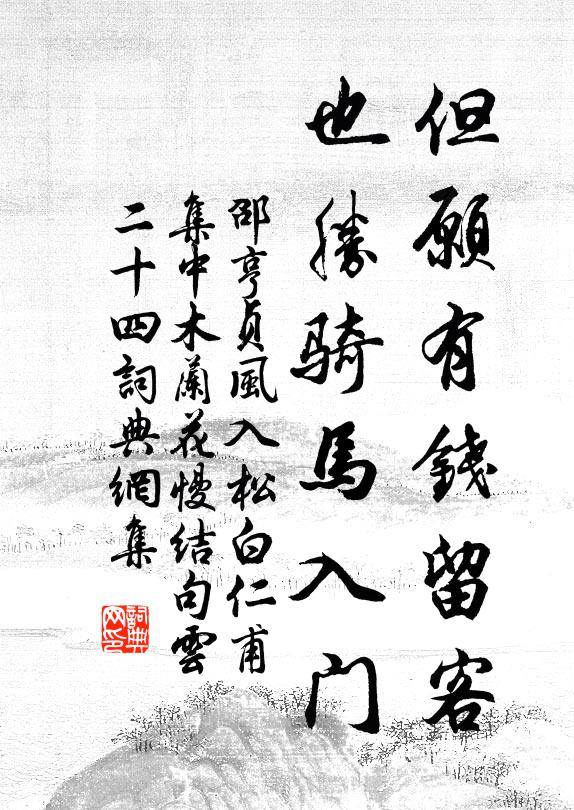 但願有錢留客
也勝騎馬入門
邵亨貞風入松白仁甫
集中木蘭花慢結句雲
二十四詞典網集
詞典
网印